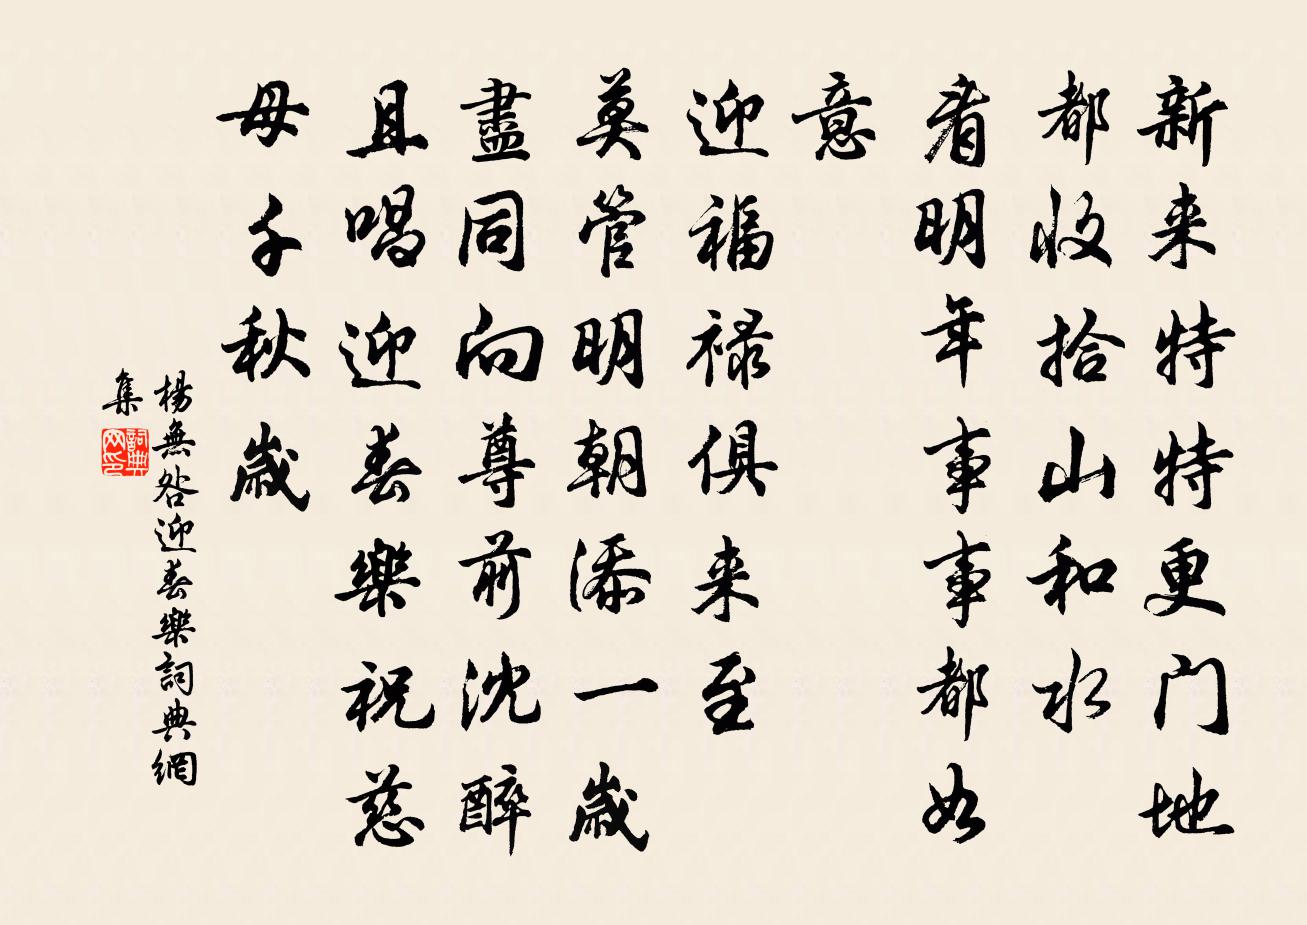 新来特特更门地
都收拾山和水
看明年事事都如
意
迎福禄俱来至
莫管明朝添一歲
盡同向尊前沈醉
且唱迎春樂祝慈
母千秋歲
楊無咎迎春樂詞典網
集
詞典網印